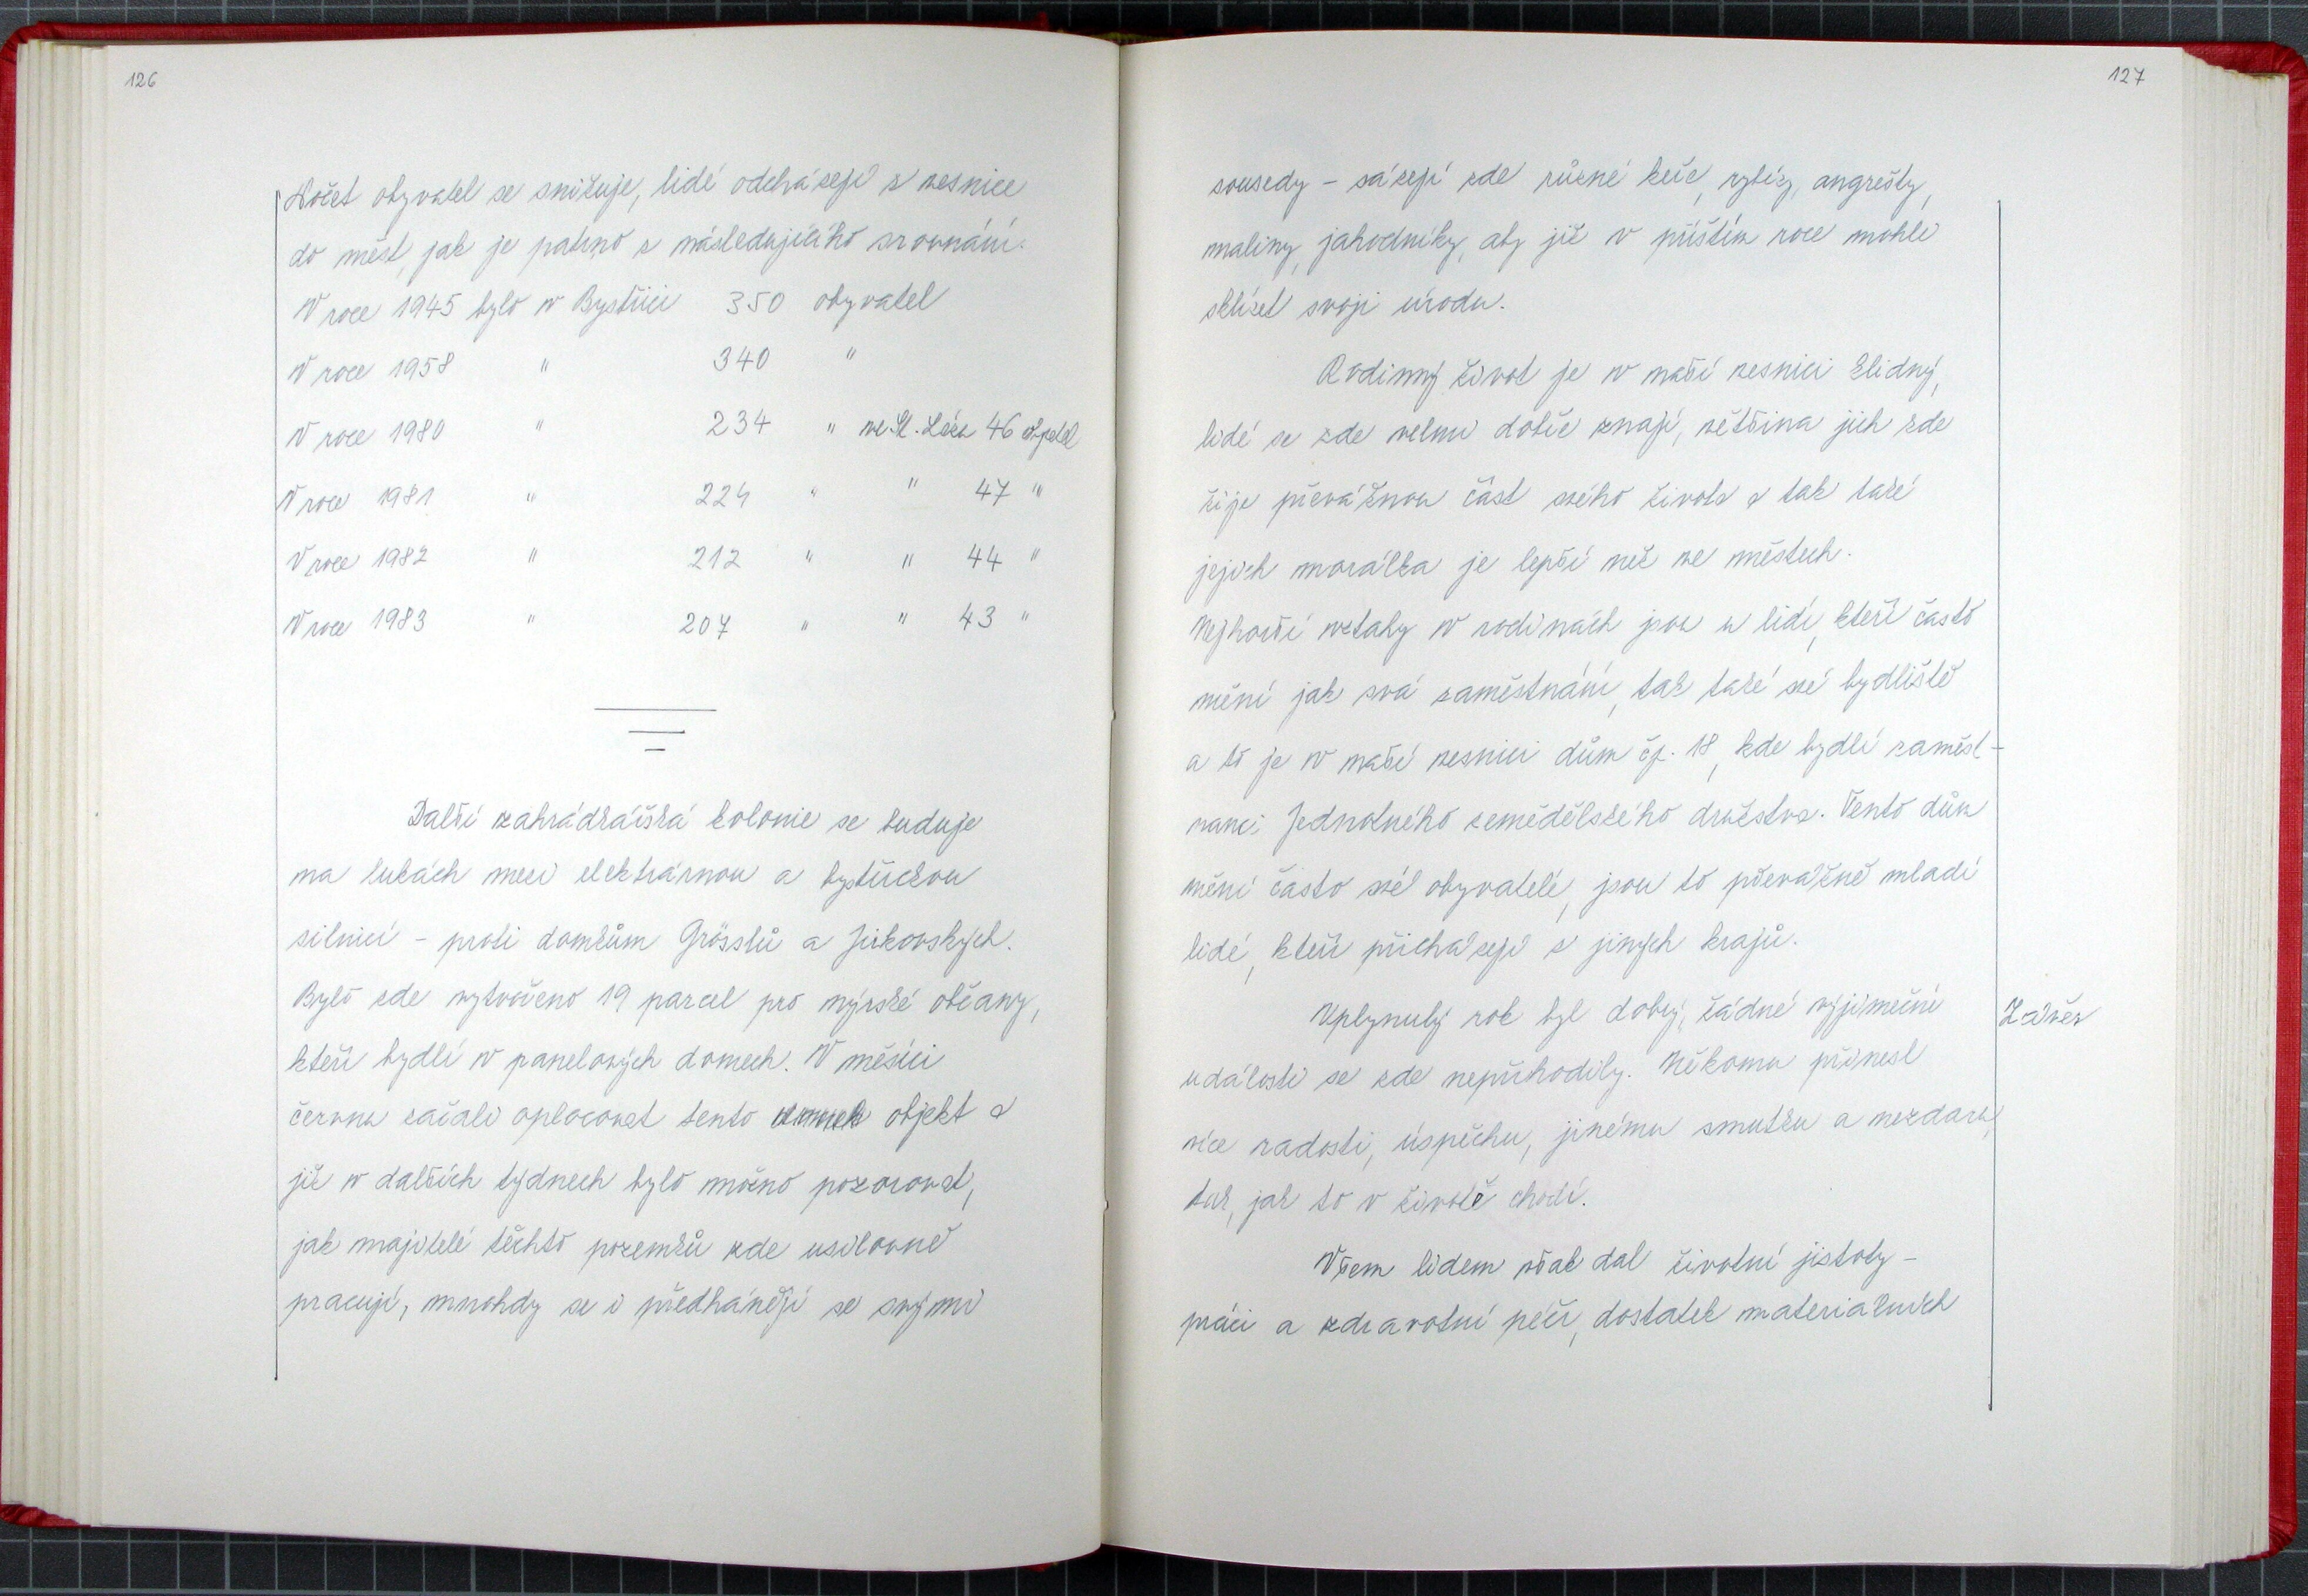 126
Počet obyvatel se snižuje, lidé odcházejí z vesnice
do měst, jak je patrno z následujícího srovnání:
V roce 1945 bylo v Bystřici 350 obyvatel
V roce 1958 " 340 "
V roce 1980 " 234 " ve St. Lázni 46 obyvatel
V roce 1981 " 224 " " 47 "
V roce 1982 " 212 " " 44 "
V roce 1983 " 207 " " 43 "
Další zahrádkářská kolonie se buduje
na lukách mezi elektrárnou a bystřickou
silnicí - proti domkům Grösslů a Jirkovských.
Bylo zde vytvořeno 19 parcel pro nýrské občany,
kteří bydlí v panelových domech. V měsíci
červnu začali oplocovat tento objekt a
již v dalších týdnech bylo možno pozorovat,
jak majitelé těchto pozemků zde usilovně
pracují, mnohdy se i předhánějí se svými
127
sousedy - sázejí zde různé keře, rybízy, angrešty,
maliny, jahodníky, aby již v příštím roce mohli
sklízet svoji úrodu.
Rodinný život je v naší vesnici klidný,
lidé se zde velmi dobře znají, většina jich zde
žije převážnou část svého života a tak také
jejich morálka je lepší než ve městech.
Nejhorší vztahy v rodinách jsou u lidí, kteří často
mění jak svá zaměstnání, tak také své bydliště
a to je v naší vesnici dům čp. 18, kde bydlí zaměst-
nanci Jednotného zemědělského družstva. Tento dům
mění často své obyvatelé, jsou to převážně mladí
lidé, kteří přicházejí z jiných krajů.
Uplynulý rok byl dobrý, žádné vyjímečné
Závěr
události se zde nepřihodily. Někomu přinesl
více radosti, úspěchu, jinému smutku a nezdaru,
tak, jak to v životě chodí.
Všem lidem však dal životní jistoty -
práci a zdravotní péči, dostatek materiálních